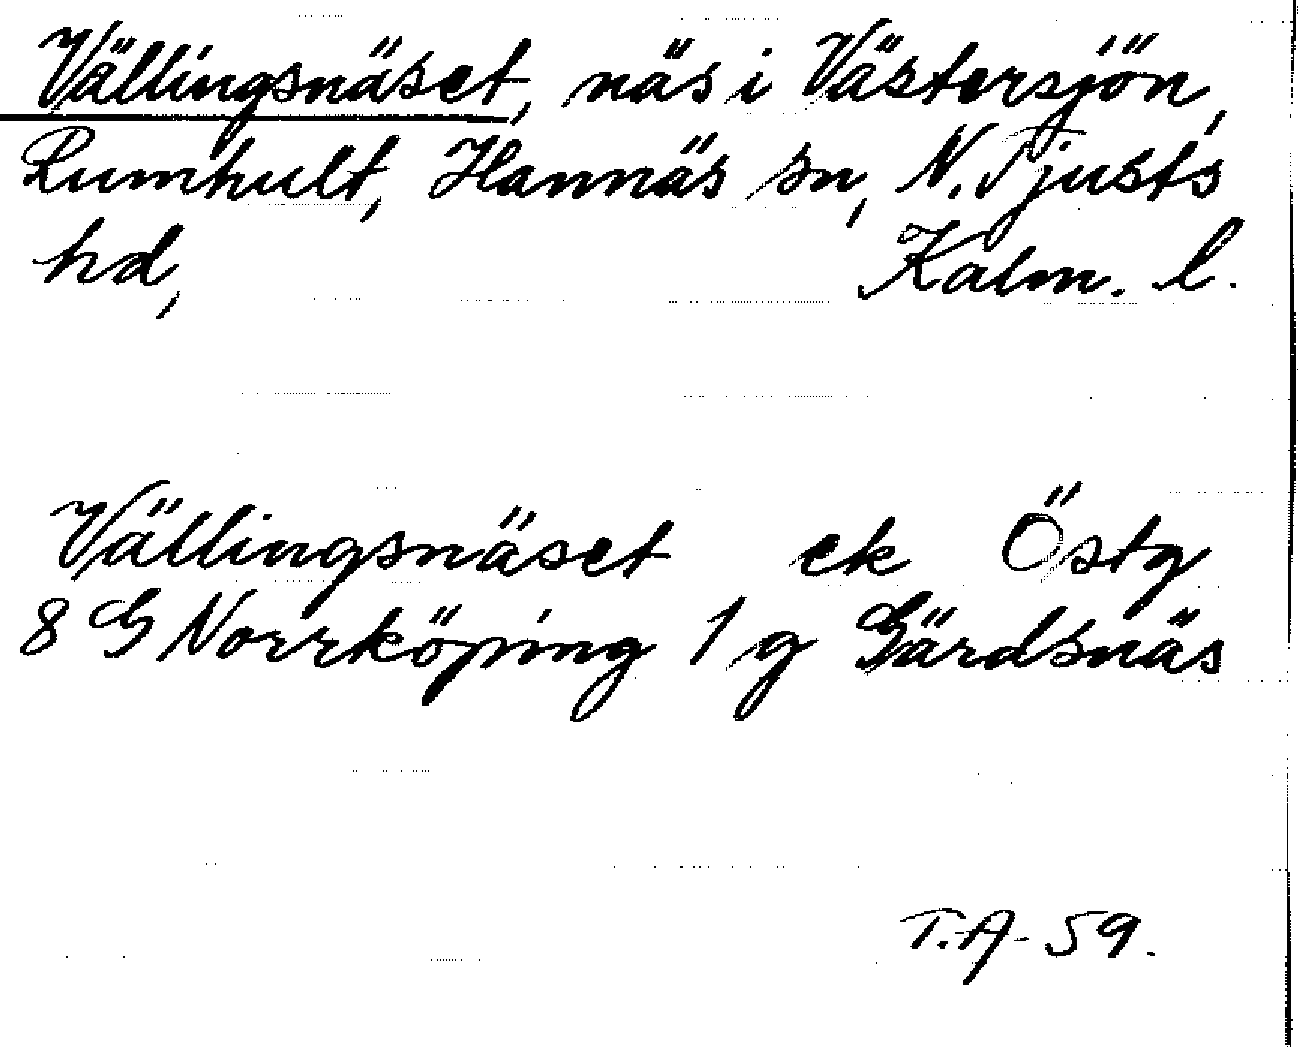 Vällingsnäset, näs i Västersjön,
Rumhult, Hannäs sn, N. Tjusts
hd, Kalm. l.
Vällingsnäset ek Östg
8 G Norrköping 1 g Gärdsnäs
T.A- 59.